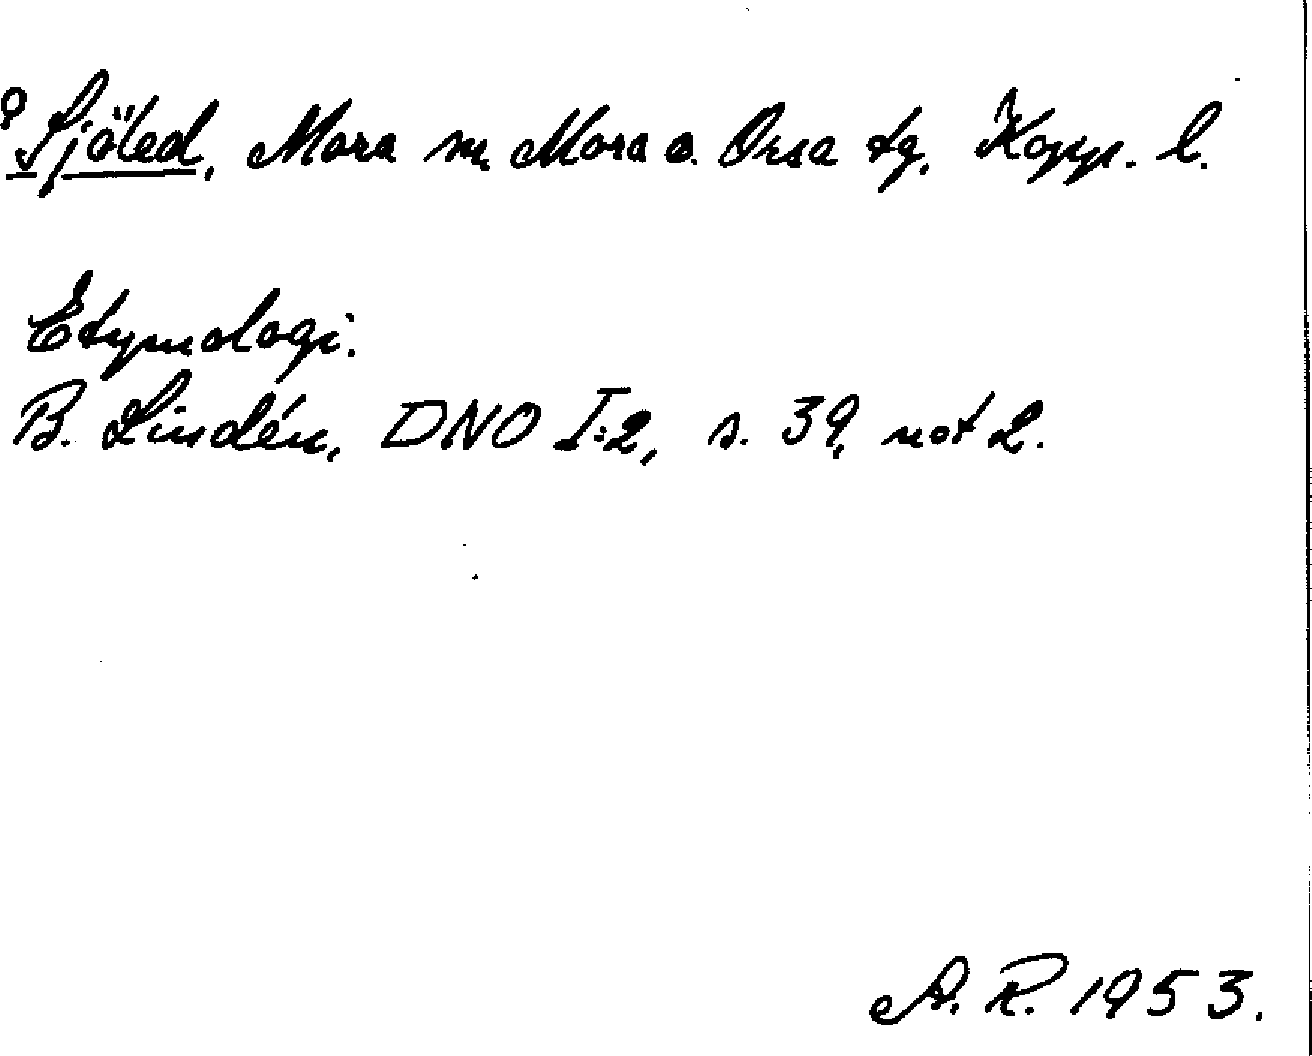 Sjöled, Mora sn, Mora o. Orsa tg, Kopp. l.
Etymologi:
B. Lindén, DNO I:2, s. 39, not 2.
A. R. 1953.